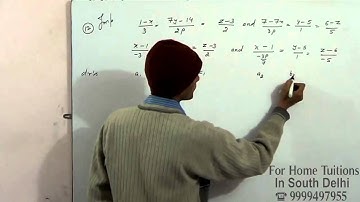 ⑫ Imp 1-x/3 = 7y-14/2p = z-3/2 and 7-7x/3p = y-5/1 = 6-z/5
x-1/-3 = z-3/2 and x-1/-3p/7 = y-5/1 = z-6/-5
dr's a₁ a₂ b₂
For Home Tuitions
In South Delhi
☎ 9999497955